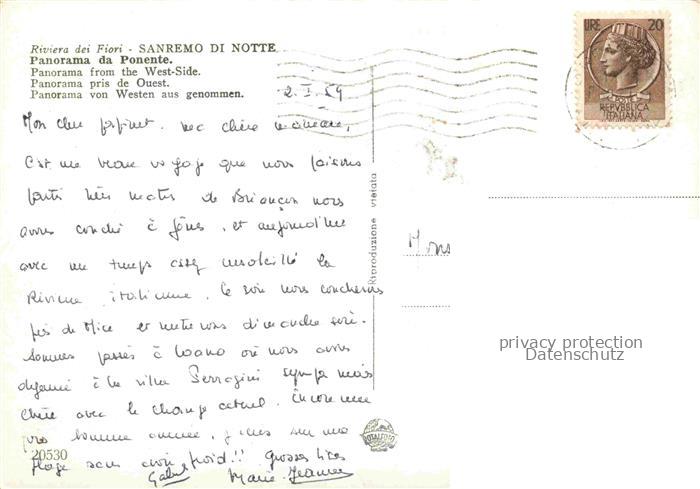 Riviera dei Fiori - SANREMO DI NOTTE
Panorama da Ponente.
Panorama from the West-Side.
Panorama pris de Ouest.
Panorama von Westen aus genommen.
2. I. 59
Mon cher
C'est un vrai voyage que nous faisons
partis hier matin de Briançon nous
avons couché à Gênes, et aujourd'hui
avec un temps assez ensoleillé la
Riviera italienne. Ce soir nous coucherons
près de Nice et rentrerons dimanche soir.
Sommes passés à Loano où nous avons
déjeuné à la villa sympa mais
chère avec le change actuel. Encore une
bonne année, sur une
plage sans avoir froid!! Grosses bises
Gaby Marie-Jeanne
20530
Riproduzione vietata
ROTALFOTO
LIRE 20
POSTE
REPVBBLICA
ITALIANA
Mons
privacy protection
Datenschutz